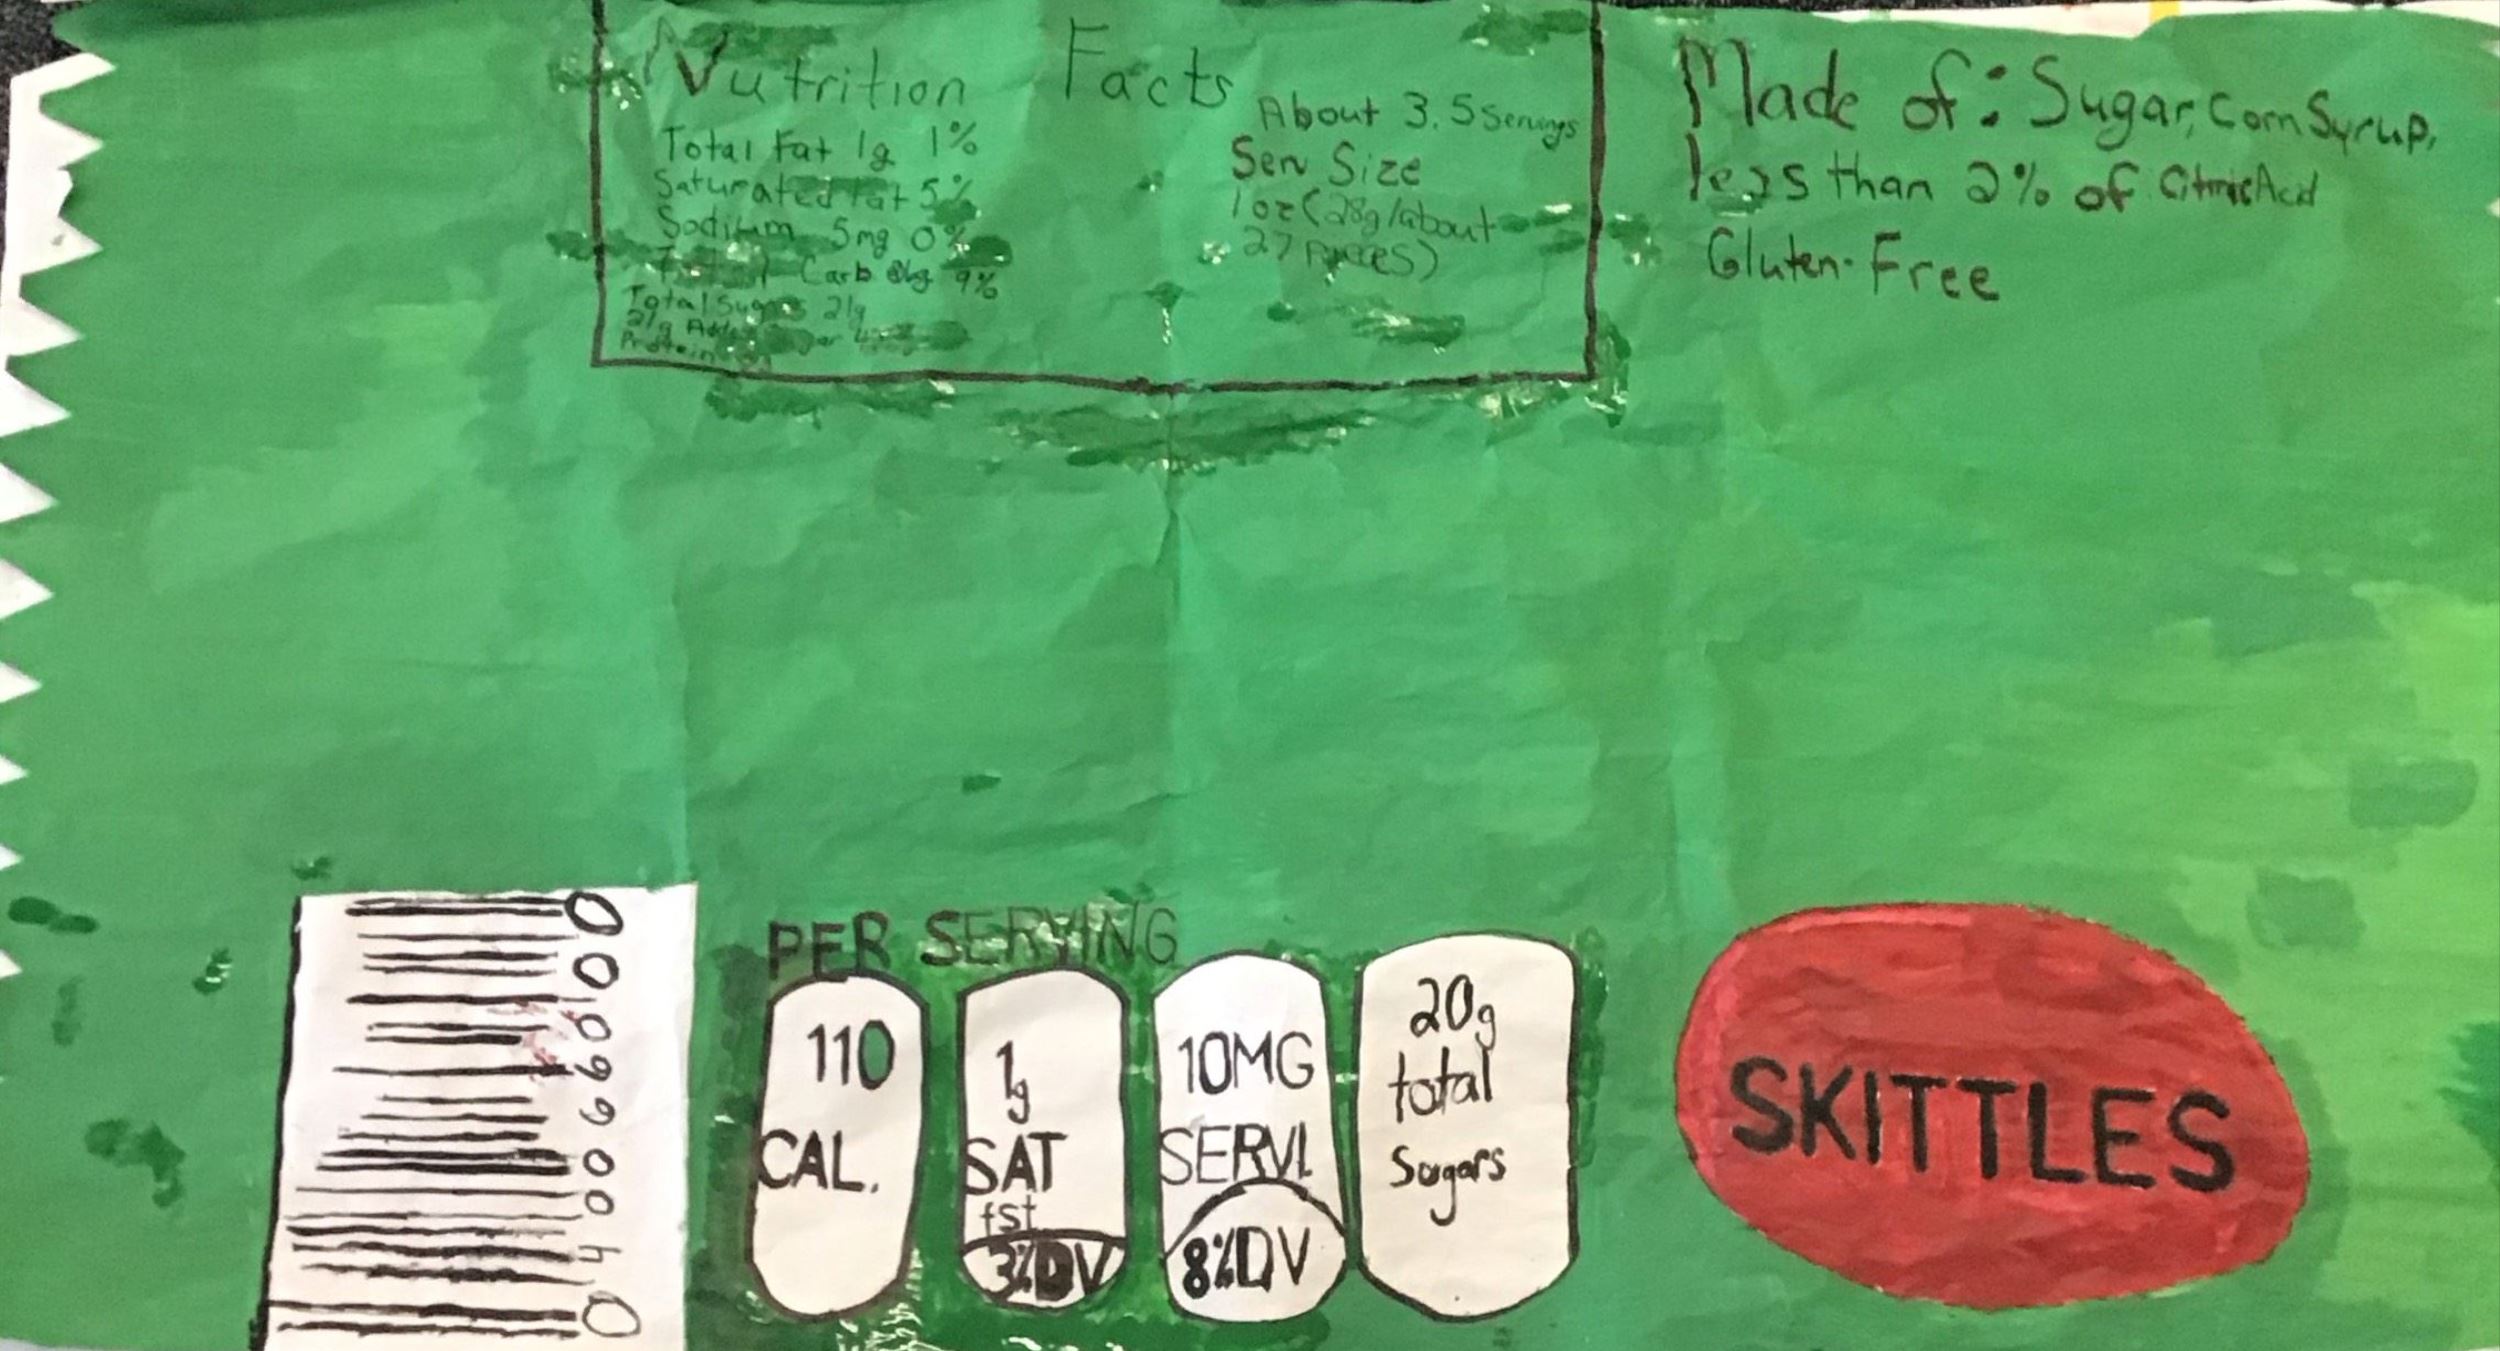 Nutrition Facts
Total Fat 1g 1%
Saturated Fat 5%
Sodium 5mg 0%
Carb 9%
Total Sugars 21g
21g
Protein
About 3.5 Servings
Serv Size
1oz (28g/about
27 pieces)
Made of: Sugar, Corn Syrup,
less than 2% of Citric Acid
Gluten-Free
PER SERVING
110
CAL.
1g
SAT
fst
3%DV
10MG
SERVI
8%DV
20g
total
Sugars
SKITTLES